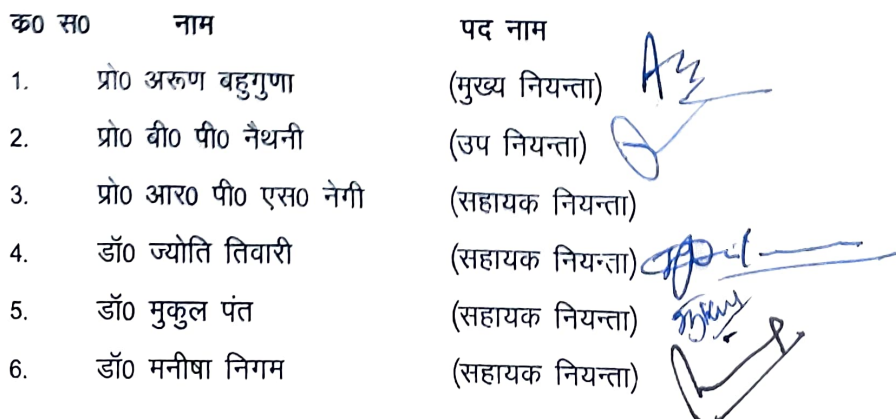 क0 स0 नाम पद नाम
1. प्रो0 अरूण बहुगुणा (मुख्य नियन्ता)
2. प्रो0 बी0 पी0 नैथनी (उप नियन्ता)
3. प्रो0 आर0 पी0 एस0 नेगी (सहायक नियन्ता)
4. डॉ0 ज्योति तिवारी (सहायक नियन्ता)
5. डॉ0 मुकुल पंत (सहायक नियन्ता)
6. डॉ0 मनीषा निगम (सहायक नियन्ता)